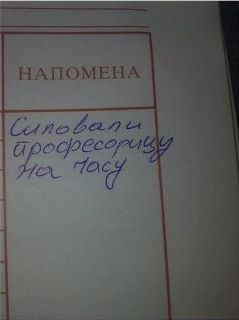 НАПОМЕНА
Силовали
професорицу
на часу